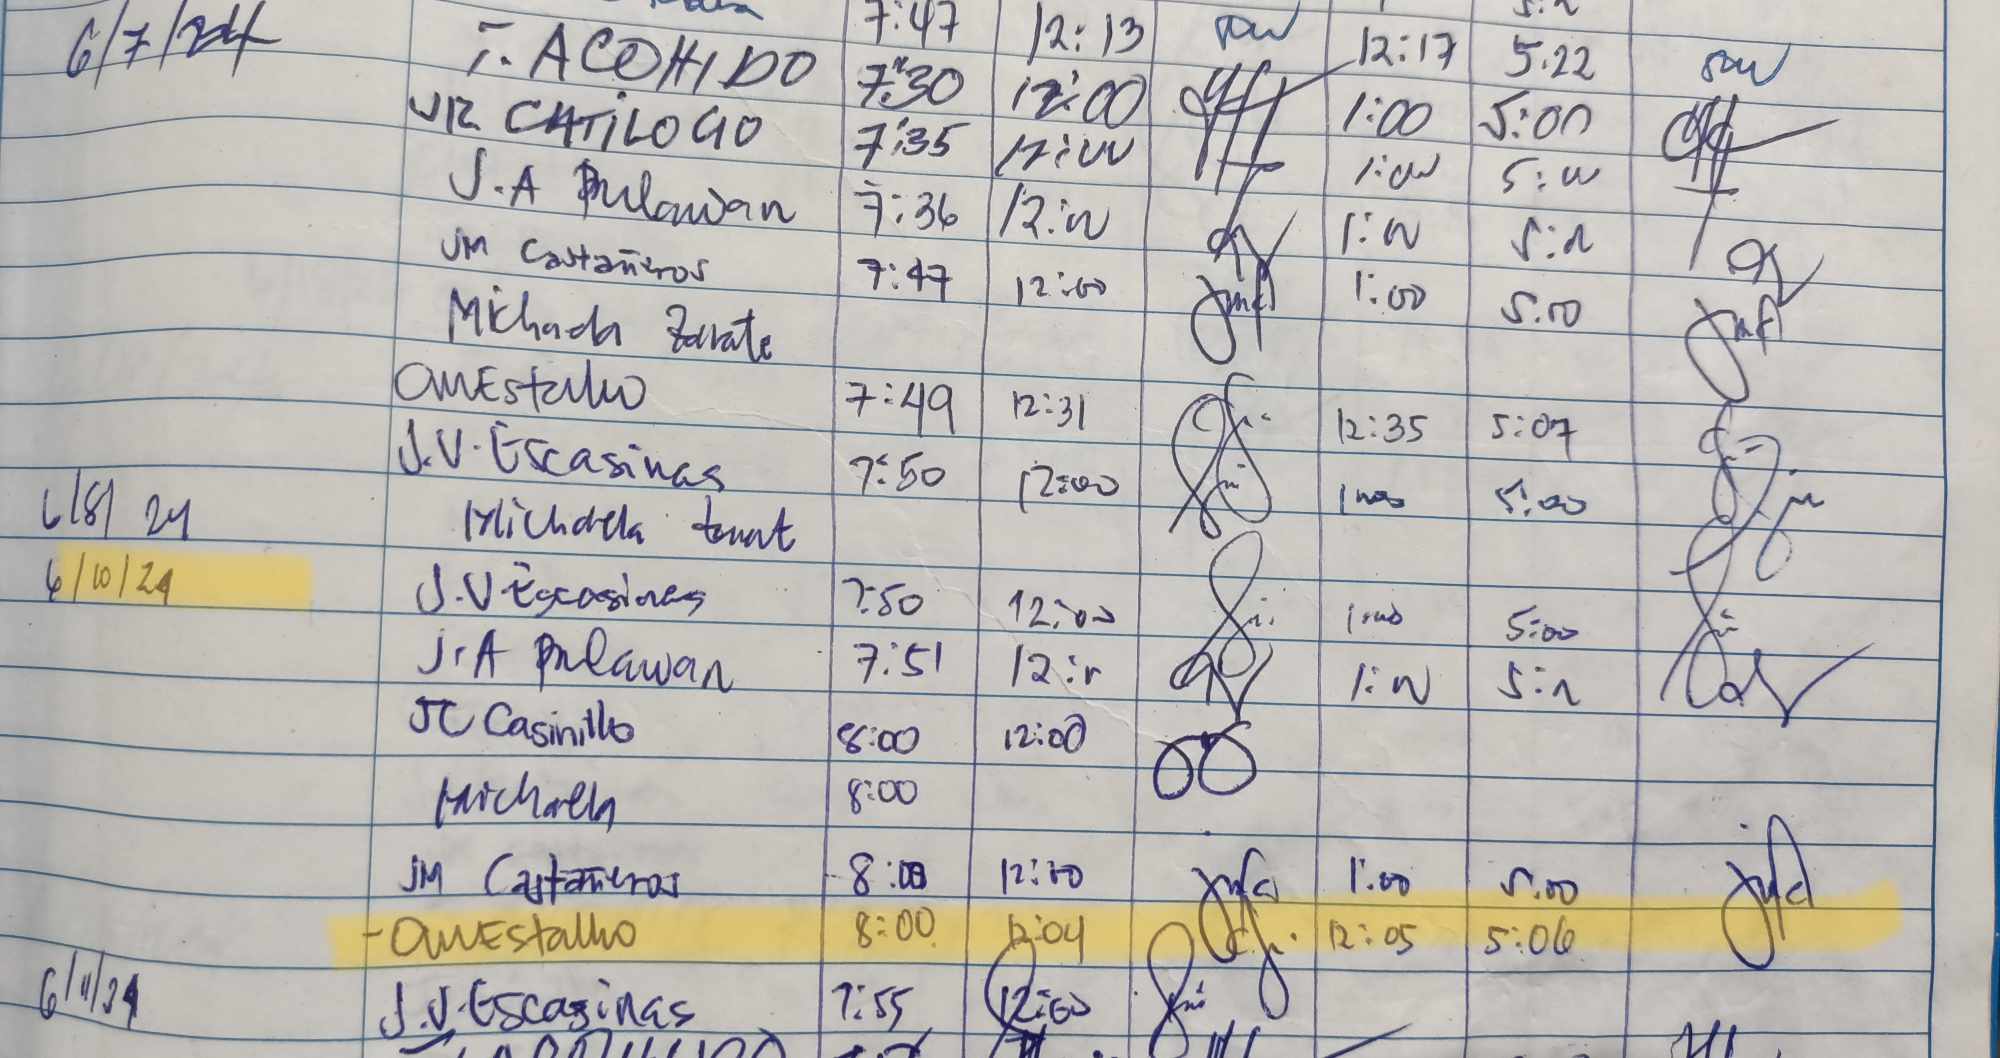 7:47 12:13 12:17 5:22
6/7/24 T. ACOHIDO 7:30 12:00 1:00 5:00
JR. CATILOGO 7:35 12:00 1:00 5:00
J.A Bulawan 7:36 12:00 1:00 5:00
JM Castañeros 7:47 12:00 1:00 5:00
Michaela Zarate
OMEstalho 7:49 12:31 12:35 5:07
J.V. Escasinas 7:50 12:00 1:00 5:00
6/8/24 Michaela
6/10/24 J.V Escasinas 7:50 12:00 1:00 5:00
J.A Bulawan 7:51 12:00 1:00 5:00
JC Casinillo 8:00 12:00
Michaela 8:00
JM Castañeros 8:00 12:00 1:00 5:00
- OMEstalho 8:00 12:04 12:05 5:06
6/11/24 J.V. Escasinas 7:55 12:00